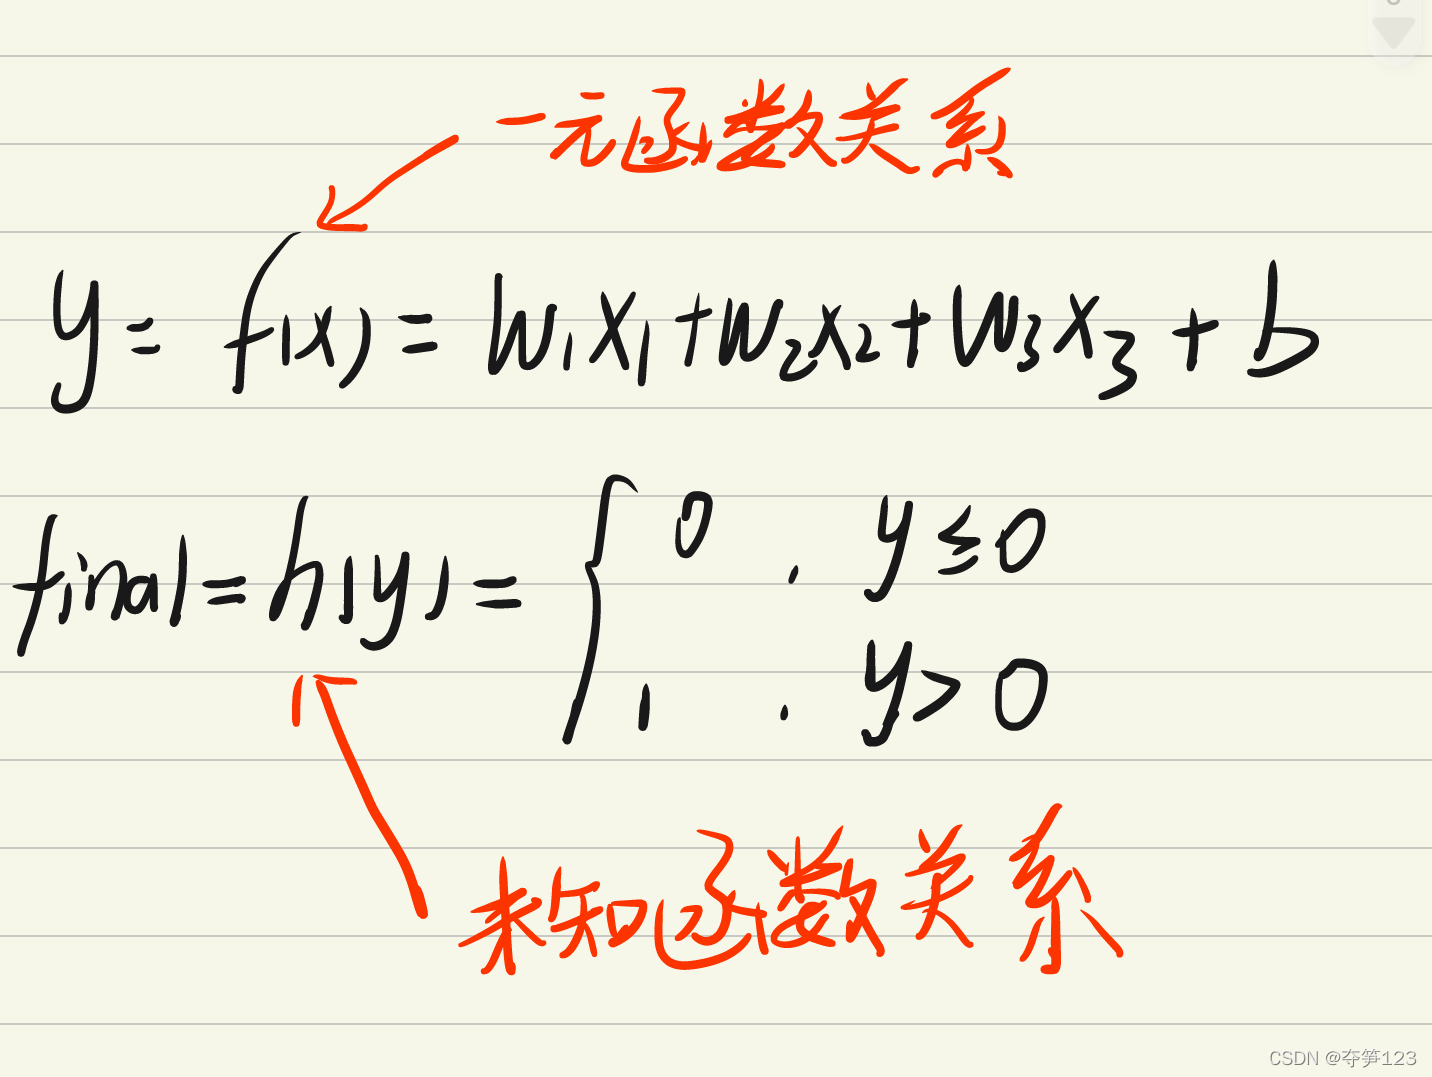 一元函数关系
y = f(x) = w₁x₁+w₂x₂+w₃x₃+b
final = h(y) = { 0 , y≤0
1 , y>0
未知函数关系
CSDN @夺笋123